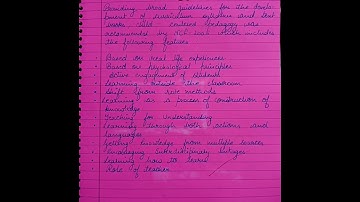 Providing broad guidelines for the deve-
lopment of curriculum syllabus and text
books child centered pedagogy was
recommended by which includes
the following features
• Based on real life experiences
• Based on psychological principles
• Active engagement of students
• Learning outside the classroom
• Shift from rote methods
• Learning as a process of construction of
knowledge
• Teaching for understanding
• Learning through both actions and
languages
• Getting knowledge from multiple sources
• Emphasizing interdisciplinary linkages
• Learning how to learn
• Role of teacher